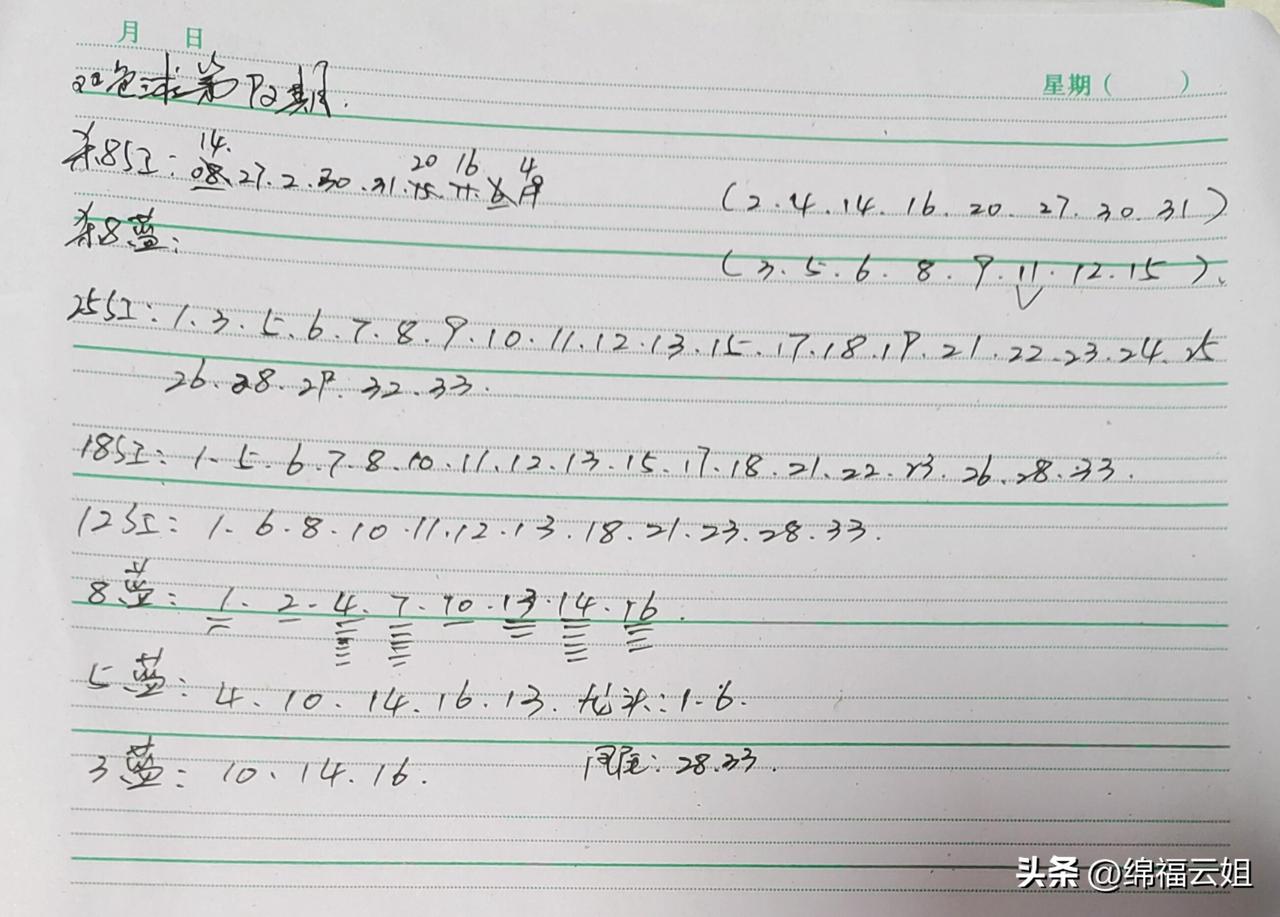 月 日
星期（ ）
双色球第92期.
14. 20 16 4
杀8红: 08.27.2.30.31.15.
(2.4.14.16.20.27.30.31)
杀8蓝:
(3.5.6.8.9.11.12.15).
25红: 1.3.5.6.7.8.9.10.11.12.13.15.17.18.19.21.22.23.24.25
26.28.29.32.33.
18红: 1.5.6.7.8.10.11.12.13.15.17.18.21.22.23.26.28.33.
12红: 1.6.8.10.11.12.13.18.21.23.28.33.
8蓝: 1.2.4.7.10.13.14.16.
5蓝: 4.10.14.16.13. 龙头: 1.6.
3蓝: 10.14.16. 凤尾: 28.33.
头条 @绵福云姐